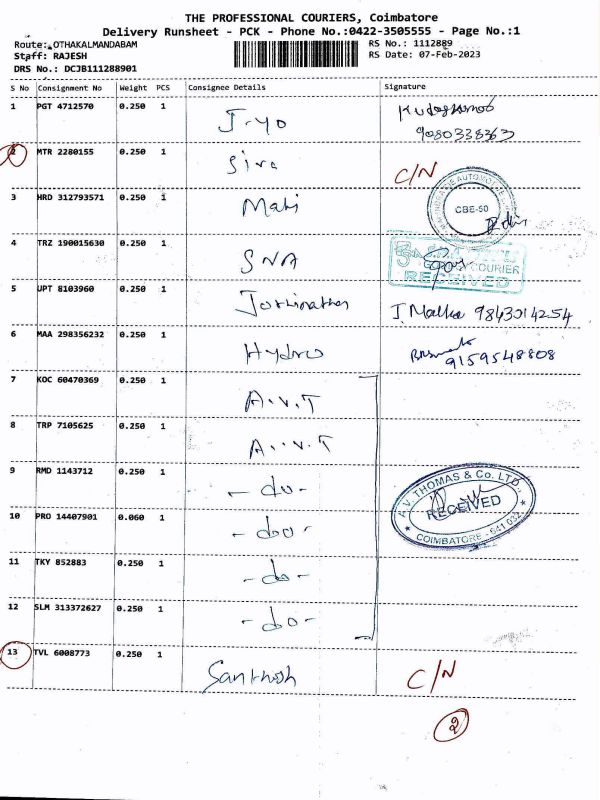 THE PROFESSIONAL COURIERS, Coimbatore
Delivery Runsheet - PCK - Phone No.:0422-3505555 - Page No.:1
Route: OTHAKALMANDABAM RS No.: 1112889
Staff: RAJESH RS Date: 07-Feb-2023
DRS No.: DCJB111288901
S No Consignment No Weight PCS Consignee Details Signature
1 PGT 4712570 0.250 1 J-yo
9080338363
2 MTR 2280155 0.250 1 Siva C/N
3 HRD 312793571 0.250 1 Mahi CBE-50
4 TRZ 190015630 0.250 1 SNA COURIER
RECEIVED
5 UPT 8103960 0.250 1 9843014254
6 MAA 298356232 0.250 1 Hydro 9159548808
7 KOC 60470369 0.250 1 A.V.T
8 TRP 7105625 0.250 1 A.V.T
9 RMD 1143712 0.250 1 -do- A.V. THOMAS & Co. LTD.,
RECEIVED
10 PRO 14407901 0.060 1 -do- COIMBATORE - 641 032
11 TKY 852883 0.250 1 -do-
12 SLM 313372627 0.250 1 -do-
13 TVL 6008773 0.250 1 Santhosh C/N
2